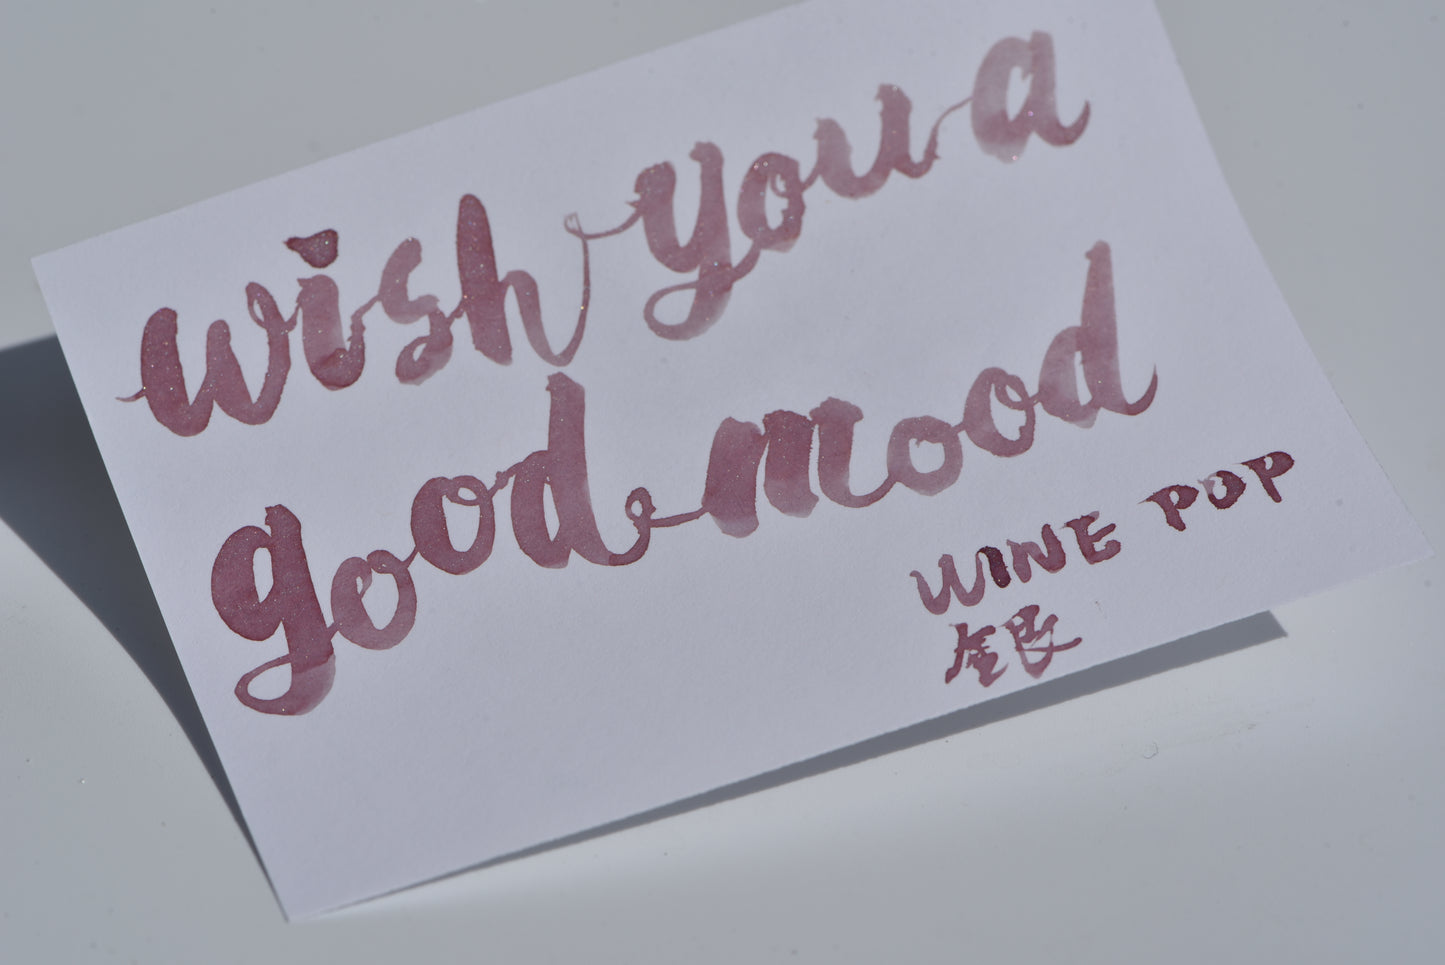 wish you a
good mood
WINE POP
銀